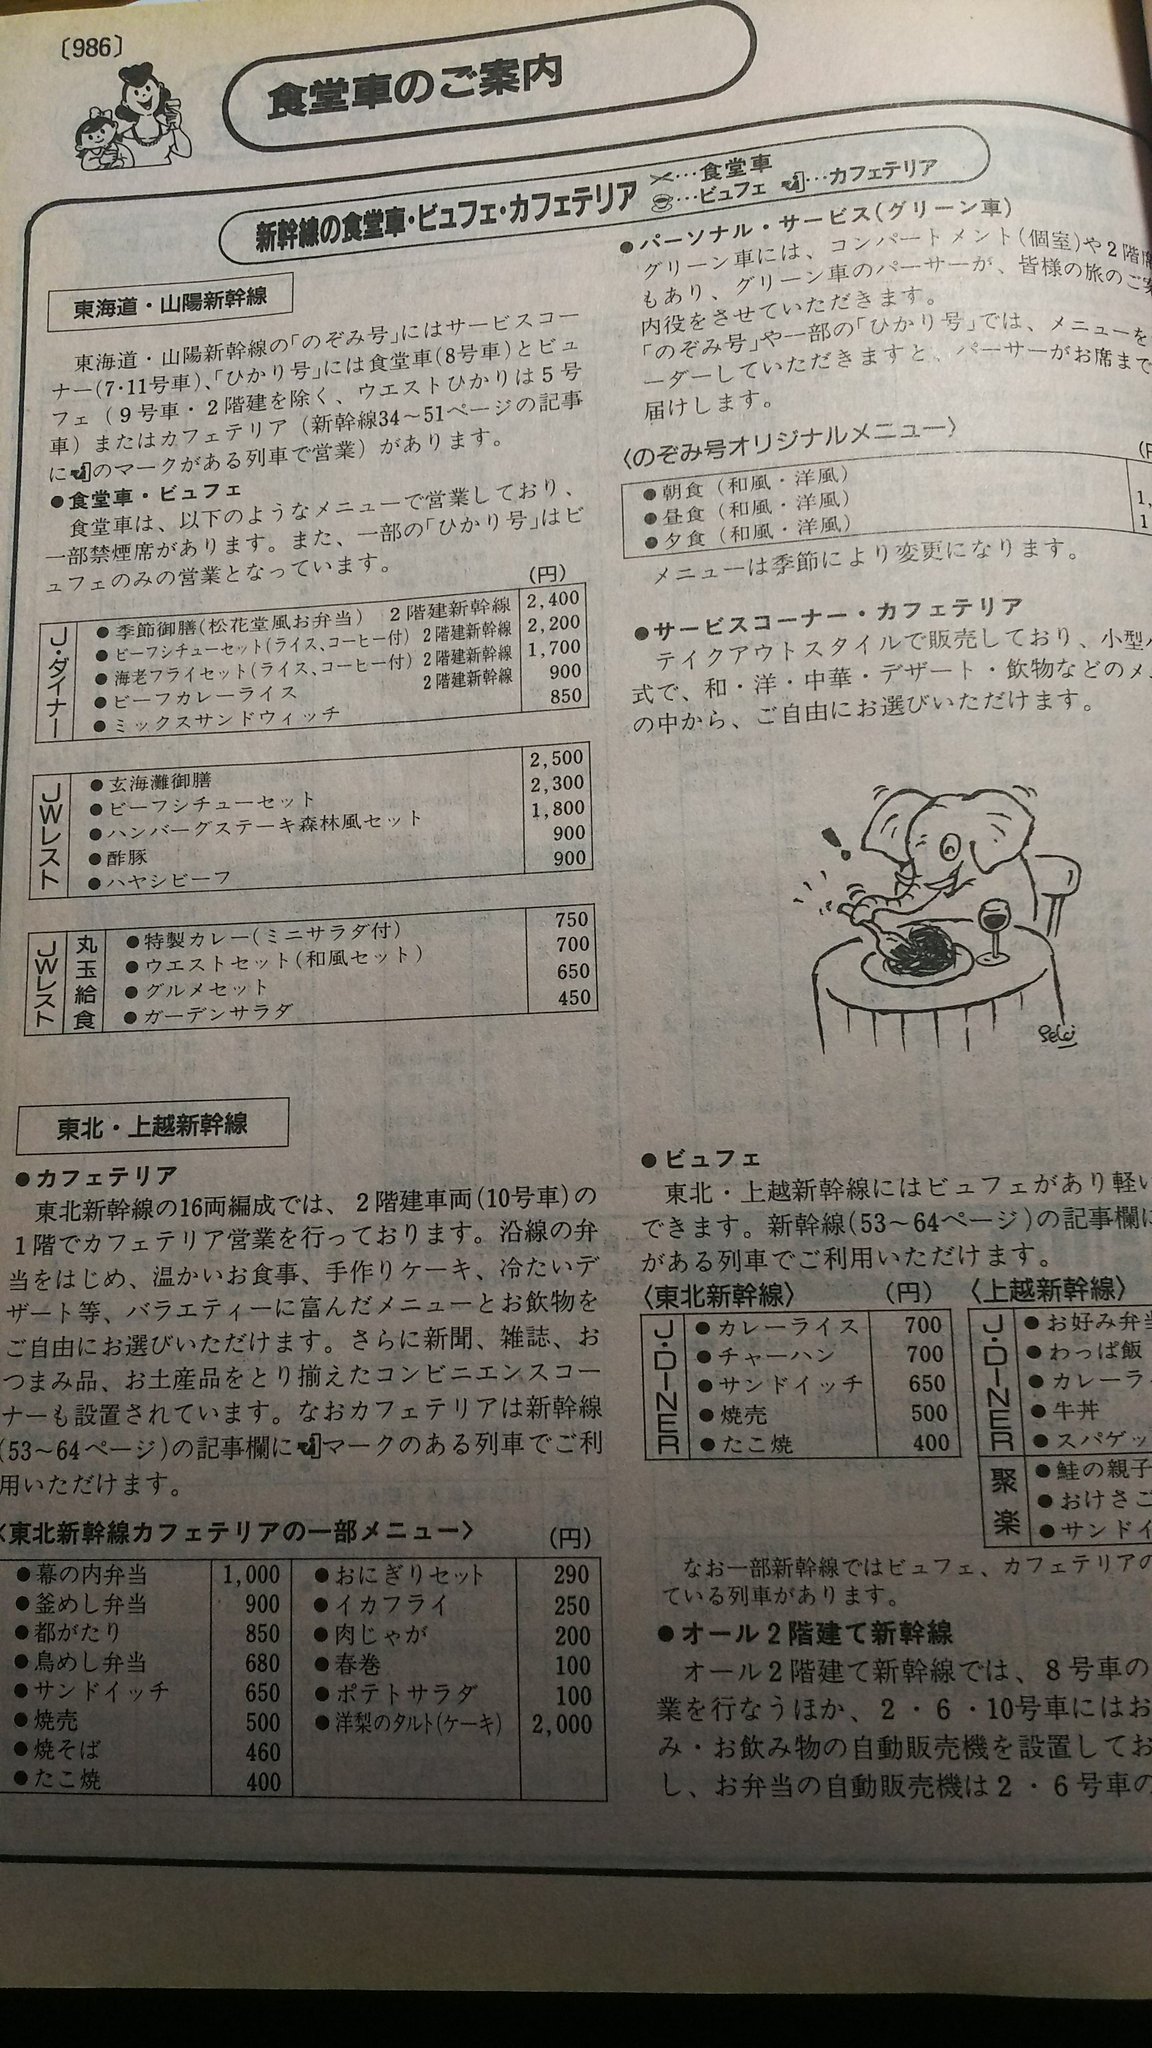 〔986〕
食堂車のご案内
新幹線の食堂車・ビュフェ・カフェテリア
…食堂車
…ビュフェ …カフェテリア
東海道・山陽新幹線
東海道・山陽新幹線の「のぞみ号」にはサービスコー
ナー(7・11号車)、「ひかり号」には食堂車(8号車)とビュ
フェ(9号車・2階建を除く、ウエストひかりは5号
車)またはカフェテリア(新幹線34～51ページの記事
に のマークがある列車で営業)があります。
●食堂車・ビュフェ
食堂車は、以下のようなメニューで営業しており、
一部禁煙席があります。また、一部の「ひかり号」はビ
ュフェのみの営業となっています。
(円)
J・ダイナー
●季節御膳(松花堂風お弁当) 2階建新幹線 2,400
●ビーフシチューセット(ライス、コーヒー付) 2階建新幹線 2,200
●海老フライセット(ライス、コーヒー付) 2階建新幹線 1,700
●ビーフカレーライス 2階建新幹線 900
●ミックスサンドウィッチ 850
JWレスト
●玄海灘御膳 2,500
●ビーフシチューセット 2,300
●ハンバーグステーキ森林風セット 1,800
●酢豚 900
●ハヤシビーフ 900
JWレスト
丸玉給食
●特製カレー(ミニサラダ付) 750
●ウエストセット(和風セット) 700
●グルメセット 650
●ガーデンサラダ 450
●パーソナル・サービス(グリーン車)
グリーン車には、コンパートメント(個室)や2階席
もあり、グリーン車のパーサーが、皆様の旅のご案
内役をさせていただきます。
「のぞみ号」や一部の「ひかり号」では、メニューを
ーダーしていただきますと、パーサーがお席まで
届けします。
〈のぞみ号オリジナルメニュー〉
●朝食(和風・洋風)
●昼食(和風・洋風) 1,
●夕食(和風・洋風) 1
メニューは季節により変更になります。
●サービスコーナー・カフェテリア
テイクアウトスタイルで販売しており、小型
式で、和・洋・中華・デザート・飲物などのメ
の中から、ご自由にお選びいただけます。
東北・上越新幹線
●カフェテリア
東北新幹線の16両編成では、2階建車両(10号車)の
1階でカフェテリア営業を行っております。沿線の弁
当をはじめ、温かいお食事、手作りケーキ、冷たいデ
ザート等、バラエティーに富んだメニューとお飲物を
ご自由にお選びいただけます。さらに新聞、雑誌、お
つまみ品、お土産品をとり揃えたコンビニエンスコー
ナーも設置されています。なおカフェテリアは新幹線
(53～64ページ)の記事欄に マークのある列車でご利
用いただけます。
〈東北新幹線カフェテリアの一部メニュー〉 (円)
●幕の内弁当 1,000
●釜めし弁当 900
●都がたり 850
●鳥めし弁当 680
●サンドイッチ 650
●焼売 500
●焼そば 460
●たこ焼 400
●おにぎりセット 290
●イカフライ 250
●肉じゃが 200
●春巻 100
●ポテトサラダ 100
●洋梨のタルト(ケーキ) 2,000
●ビュフェ
東北・上越新幹線にはビュフェがあり軽い
できます。新幹線(53～64ページ)の記事欄に
がある列車でご利用いただけます。
〈東北新幹線〉 (円)
J・DINER
●カレーライス 700
●チャーハン 700
●サンドイッチ 650
●焼売 500
●たこ焼 400
〈上越新幹線〉
J・DINER
●お好み弁当
●わっぱ飯
●カレーラ
●牛丼
●スパゲッ
聚楽
●鮭の親子
●おけさご
●サンドイ
なお一部新幹線ではビュフェ、カフェテリアの
ている列車があります。
●オール2階建て新幹線
オール2階建て新幹線では、8号車の
業を行なうほか、2・6・10号車にはお
み・お飲み物の自動販売機を設置してお
し、お弁当の自動販売機は2・6号車の